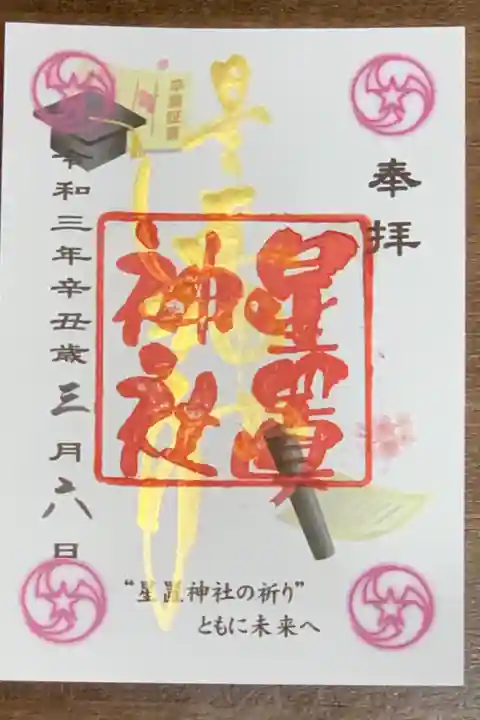 奉拝
星置
神社
星置神社
卒業証書
令和三年辛丑歳三月六日
“星置神社の祈り”
ともに未来へ